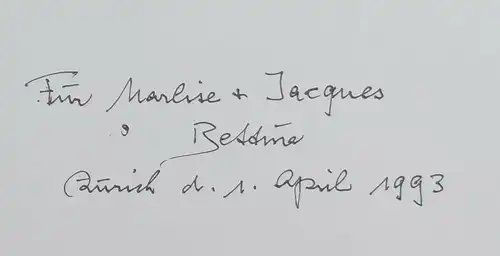 Für Marlise + Jacques
Bettina
Zürich d. 1. April 1993